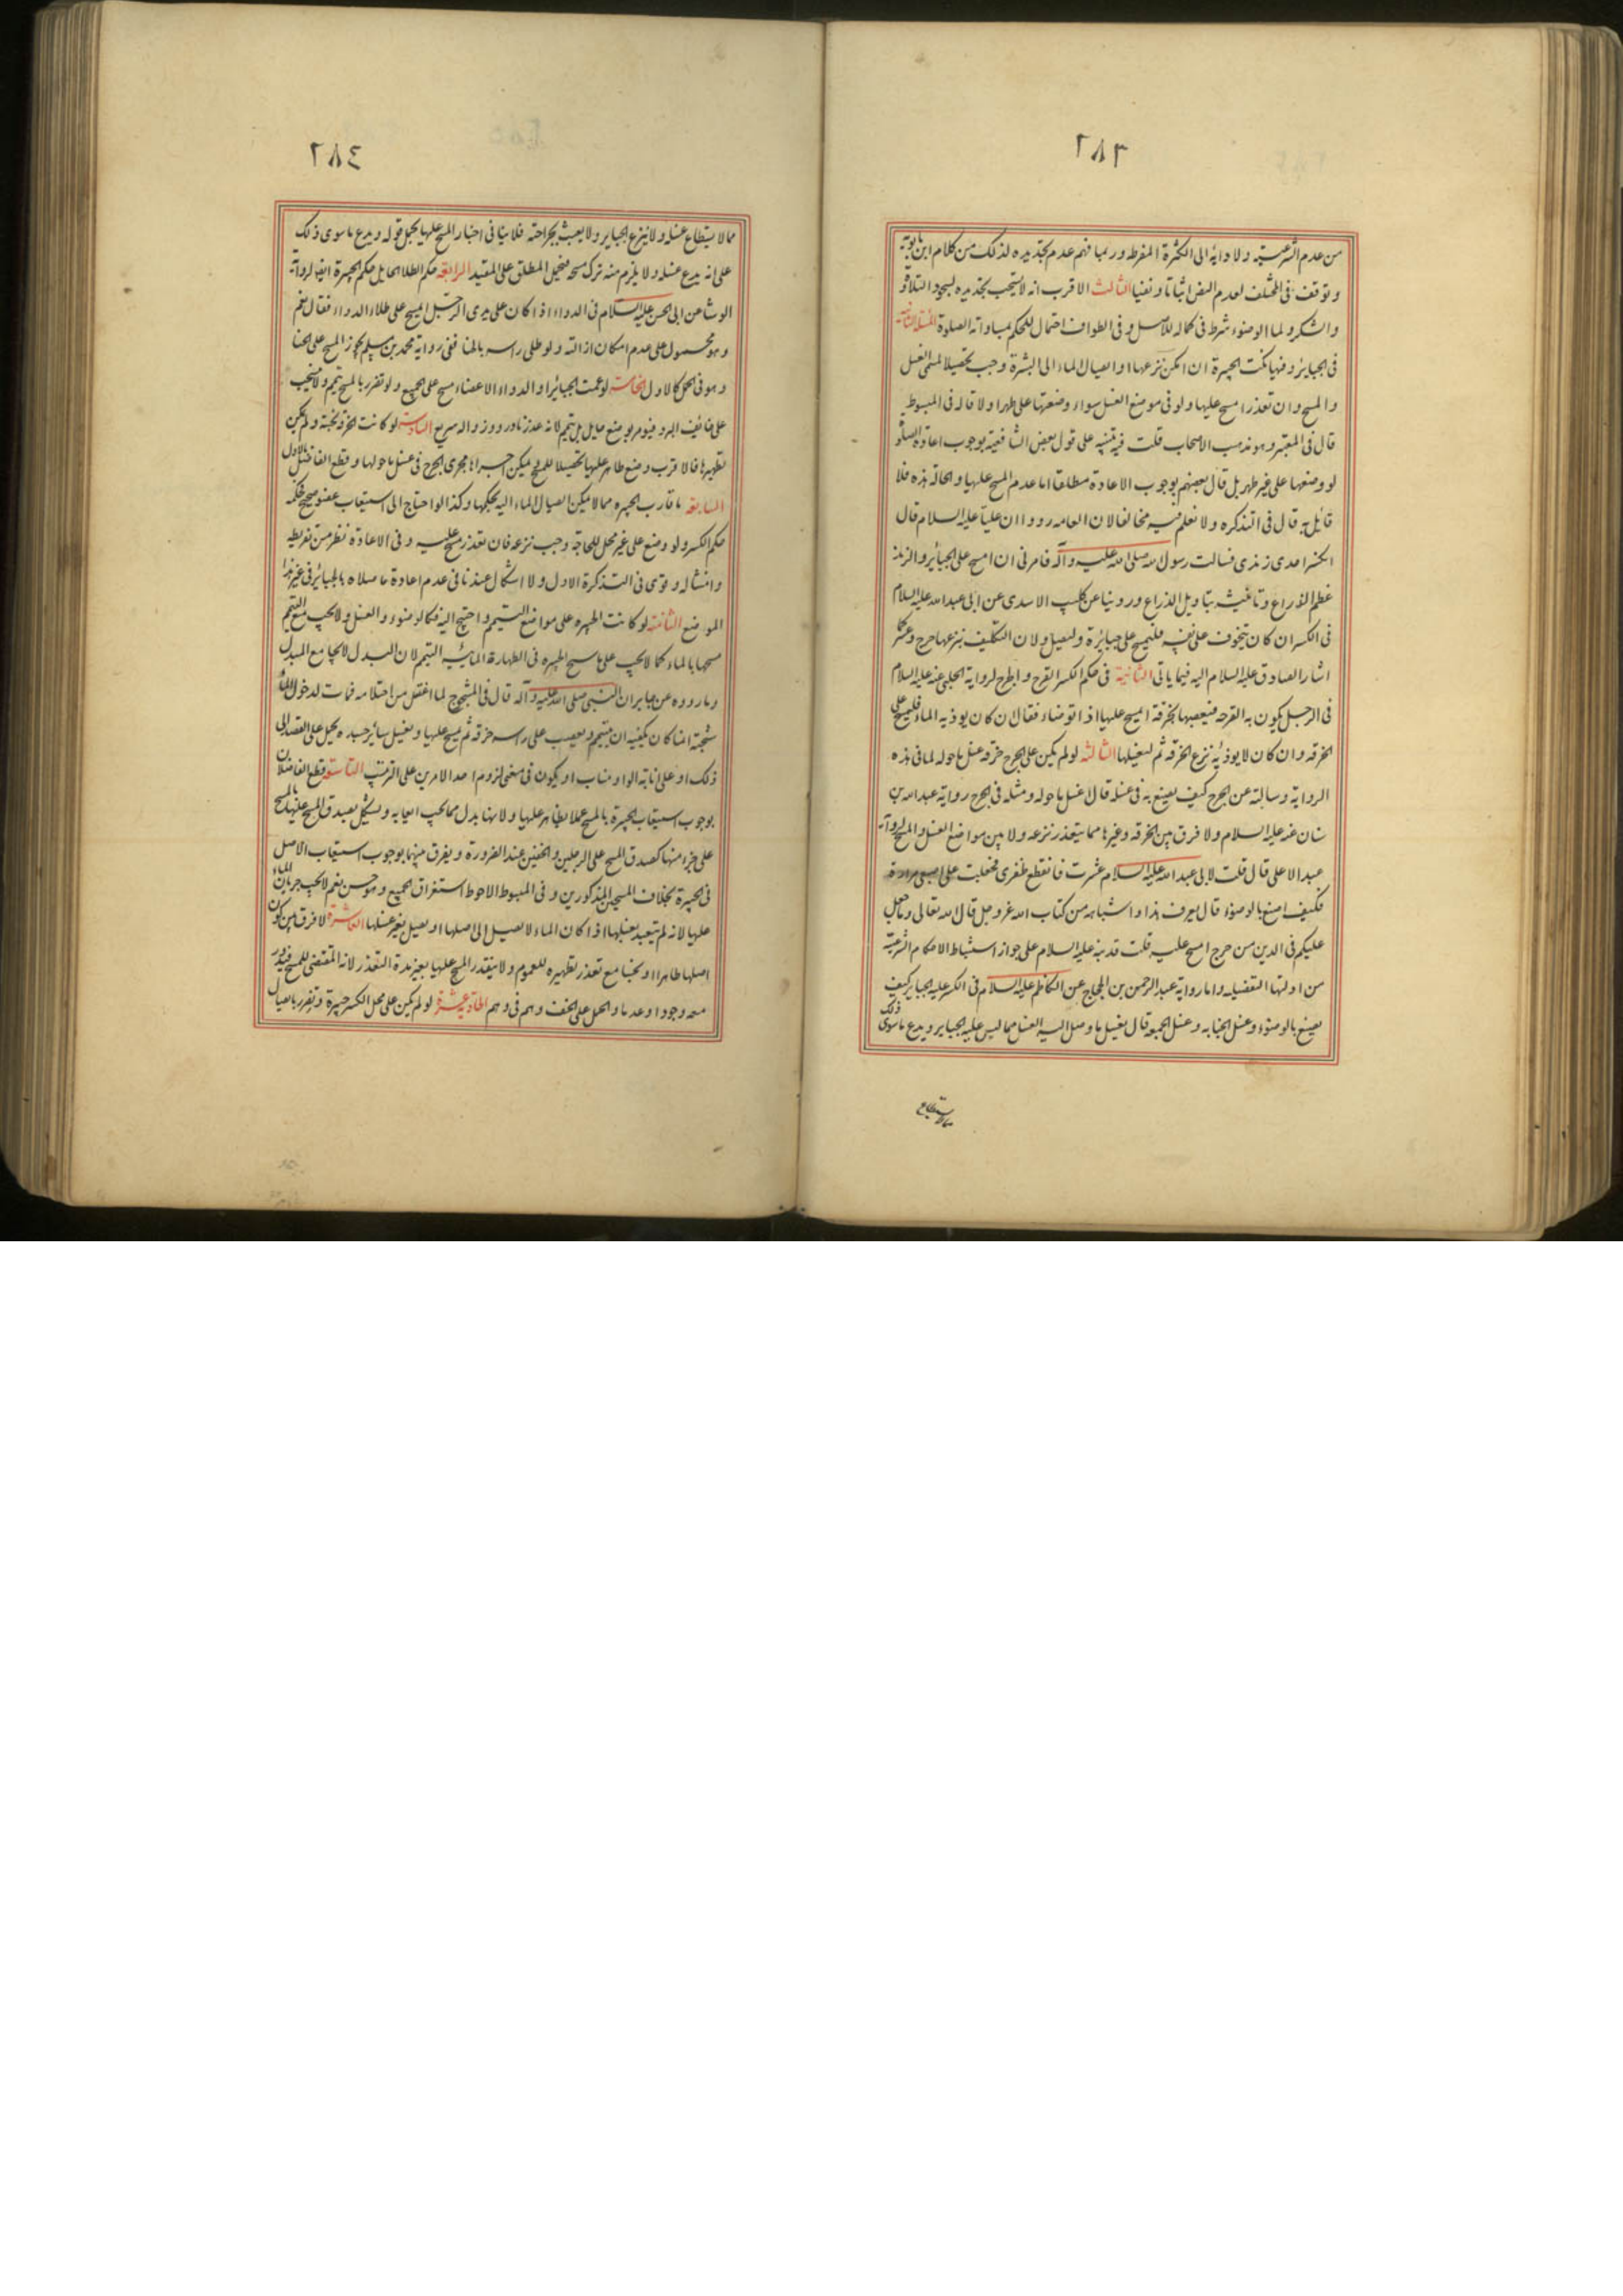 ٢٨٣
من عدم الشرعية ولادائه الى الكثرة المفرطه وربما فهم عدم تجديده لذلك من كلام ابن بابويه
وتوقف فى المختلف لعدم النص اثباتا ونفيا الثالث الاقرب انه لا يستحب تجديده لسجود التلاوة
والشكر ولما الوضوء شرط فى كماله للاصل وفى الطواف احتمال للحكم بمساواته الصلوة المسئلة الثانية
فى الجبائر وفيها نكت الجبيرة ان امكن نزعها او ايصال الماء الى البشرة وجب تحصيلا لمسمى الغسل
والمسح وان تعذر امسح عليها ولو فى موضع الغسل سواء وضعها على طهر اولا قاله فى المبسوط
قال فى المعتبر وهو مذهب الاصحاب قلت فيه تنبيه على قول بعض الشافعية بوجوب اعادة الصلوة
لو وضعها على غير طهر بل قال بعضهم بوجوب الاعادة مطلقا اما عدم المسح عليها والحالة هذه فلا
قائل به قال فى التذكره ولا نعلم فيه مخالفا لان العامه رووا ان عليا عليه السلام قال
انكسر احدى زندى فسالت رسول الله صلى الله عليه وآله فامرنى ان امسح على الجبائر والزند
عظم الذراع وتانيثه بتاويل الذراع وروينا عن كليب الاسدى عن ابى عبد الله عليه السلام
فى الكسر ان كان يتخوف على نفسه فليمسح على جبائره وليصل ولان التكليف بنزعها حرج وعسر كما
اشار الصادق عليه السلام اليه فيما ياتى الثانية فى حكم الكسر القرح والجرح لرواية الحلبى عنه عليه السلام
فى الرجل يكون به القرحه فيعصبها بالخرقة ايمسح عليها اذا توضاء فقال ان كان يوذيه الماء فليمسح على
الخرقه وان كان لا يوذيه نزع الخرقه ثم ليغسلها الثالثة لو لم يكن على الجرح خرقه غسل ما حوله لما فى هذه
الرواية وسالته عن الجرح كيف يصنع به فى غسله قال اغسل ما حوله ومثله فى الجرح رواية عبد الله بن
سنان عنه عليه السلام ولا فرق بين الخرقه وغيرها مما يتعذر نزعه ولا بين مواضع الغسل والمسح لرواية
عبد الاعلى قال قلت لابى عبد الله عليه السلام عثرت فانقطع ظفرى فجعلت على اصبعى مرارة
فكيف اصنع بالوضوء قال يعرف هذا واشباهه من كتاب الله عز وجل قال الله تعالى وما جعل
عليكم فى الدين من حرج امسح عليه قلت قد نبه عليه السلام على جواز استنباط الاحكام الشرعية
من ادلتها التفصيليه واما رواية عبد الرحمن بن الحجاج عن الكاظم عليه السلام فى الكسر عليه الجباير كيف
يصنع بالوضوء وغسل الجنابه وغسل الجمعه قال يغسل ما وصل اليه الغسل مما ليس عليه الجباير ويدع ما سوى ذلك
مالا يستطاع
٢٨٤
مما لا يستطاع غسله ولا ينزع الجباير ولا يعبث بجراحته فلا ينافى اخبار المسح عليها بحمل قوله ويدع ما سوى ذلك
على انه يدع غسله ولا يلزم منه ترك مسحه فيحمل المطلق على المقيد الرابعة حكم الطلا الحايل حكم الجبيرة ايضا لرواية
الوشا عن ابى الحسن عليه السلام فى الدواء اذا كان على يدى الرجل ايمسح على طلاء الدواء فقال نعم
وهو محمول على عدم امكان ازالته ولو طلى راسه بالحنا ففى رواية محمد بن مسلم يجوز المسح على الحنا
وهو فى الحمل كالاول الخامسة لو عمت الجبائر او الدواء الاعضاء مسح على الجميع ولو تضرر بالمسح تيمم ولا ينسحب
على خائف البرد فيومر بوضع حايل بل يتيمم لانه عذر نادر وزواله سريع السادسة لو كانت الخرقة نجسة ولم يمكن
تطهيرها فالاقرب وضع طاهر عليها تحصيلا للمسح ويمكن اجراها مجرى الجرح فى غسل ما حولها وقطع الفاضل بالاول
السابعة ما قارب الجبيره مما لا يمكن ايصال الماء اليه بحكمها وكذا لو احتاج الى استيعاب عضو صحيح فحكمه
حكم الكسر ولو وضع على غير محل للحاجة وجب نزعه فان تعذر مسح عليه وفى الاعادة نظر من تفريطه
وامتثاله وقوى فى التذكرة الاول ولا اشكال عندنا فى عدم اعادة ما صلاه بالجبائر فى غير هذا
الموضع الثامنة لو كانت الجبيره على مواضع التيمم واحتيج اليه فكالوضوء والغسل ولا يجب مع التيمم
مسحها بالماء كما لا يجب على ماسح الجبيره فى الطهارة المائية التيمم لان البدل لا يجامع المبدل
وما رووه عن جابر ان النبى صلى الله عليه وآله قال فى المشجوج لما اغتسل من احتلامه فمات لدخول الماء
شجته انما كان يكفيه ان يتيمم ويعصب على راسه خرقه ثم يمسح عليها ويغسل سائر جسده يحمل على القصد الى
ذلك او على انابة الواو مناب او يكون فى معنى لزوم احد الامرين على الترتيب التاسعة قطع الفاضلان
بوجوب استيعاب الجبيرة بالمسح عملا بظاهر عليها ولانها بدل مما يجب ايعابه ويشكل بصدق المسح عليها بالمسح
على جزء منها كصدق المسح على الرجلين والخفين عند الضرورة ويفرق بينهما بوجوب استيعاب الاصل
فى الجبيرة بخلاف المسحين المذكورين وفى المبسوط الاحوط استغراق الجميع وهو حسن نعم لا يجب جريان الماء
عليها لانه لم يتعبد بغسلها اذا كان الماء لا يصل الى اصلها او يصل بغير غسلها العاشرة لا فرق بين كون
اصلها طاهرا او نجسا مع تعذر تطهيره للعموم ولا يتقدر المسح عليها بغير مدة التعذر لانه المقتضى للمسح فيدور
معه وجودا وعدما والحمل على الخف وهم فى وهم الحادية عشرة لو لم يكن على محل الكسر جبيرة وتضرر بايصال